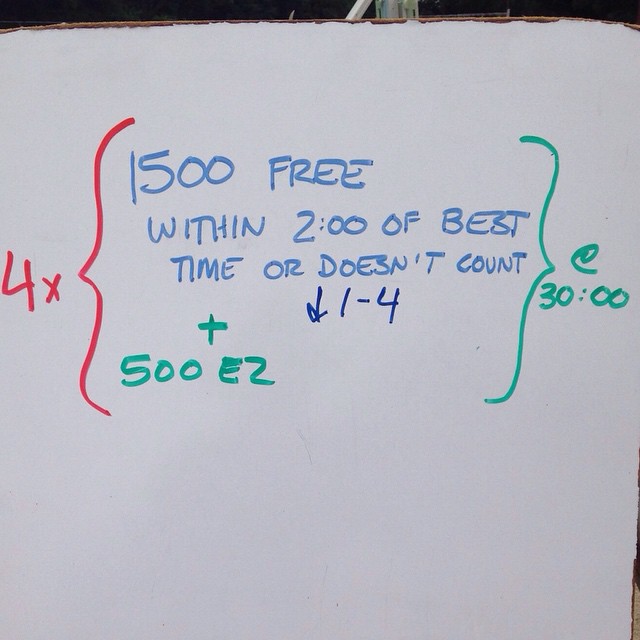 4x
1500 FREE
WITHIN 2:00 OF BEST
TIME OR DOESN'T COUNT
↓ 1-4
+
500 EZ
@
30:00